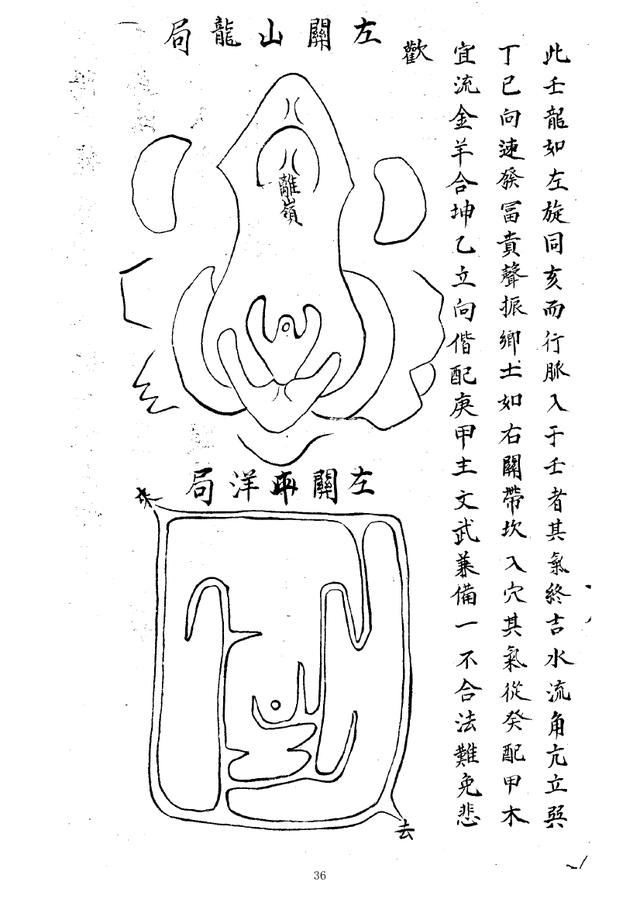 此壬龍如左旋同亥而行脈入于壬者其氣終吉水流角亢立巽
丁巳向速發冨貴聲振鄉土如右關帶坎入穴其氣從癸配甲木
宜流金羊合坤乙立向偕配庚甲主文武兼備一不合法難免悲
歡
左關山龍局
離嶺
左關平洋局
来
去
36